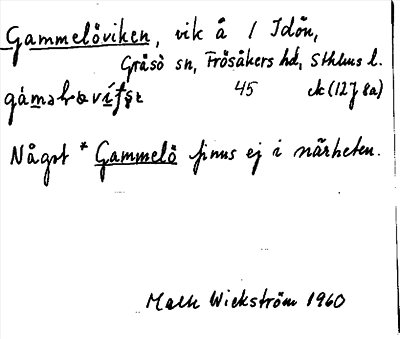 Gammelöviken, vik å / Idön,
Gräsö sn, Frösåkers hd, Sthlms l.
45 ek (12J 8a)
Något * Gammelö finns ej i närheten.
Wickström 1960